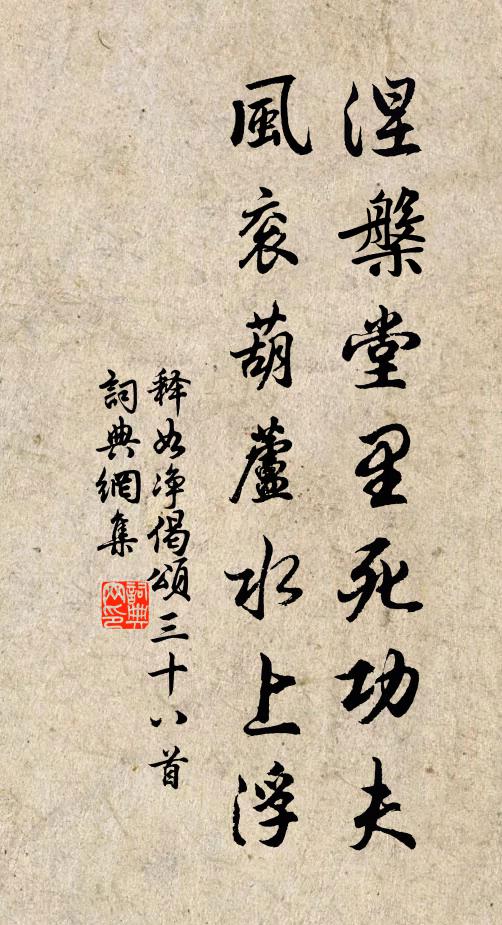 涅槃堂里死功夫
風衮葫蘆水上浮
释如净偈頌三十八首
詞典網集
詞典網印